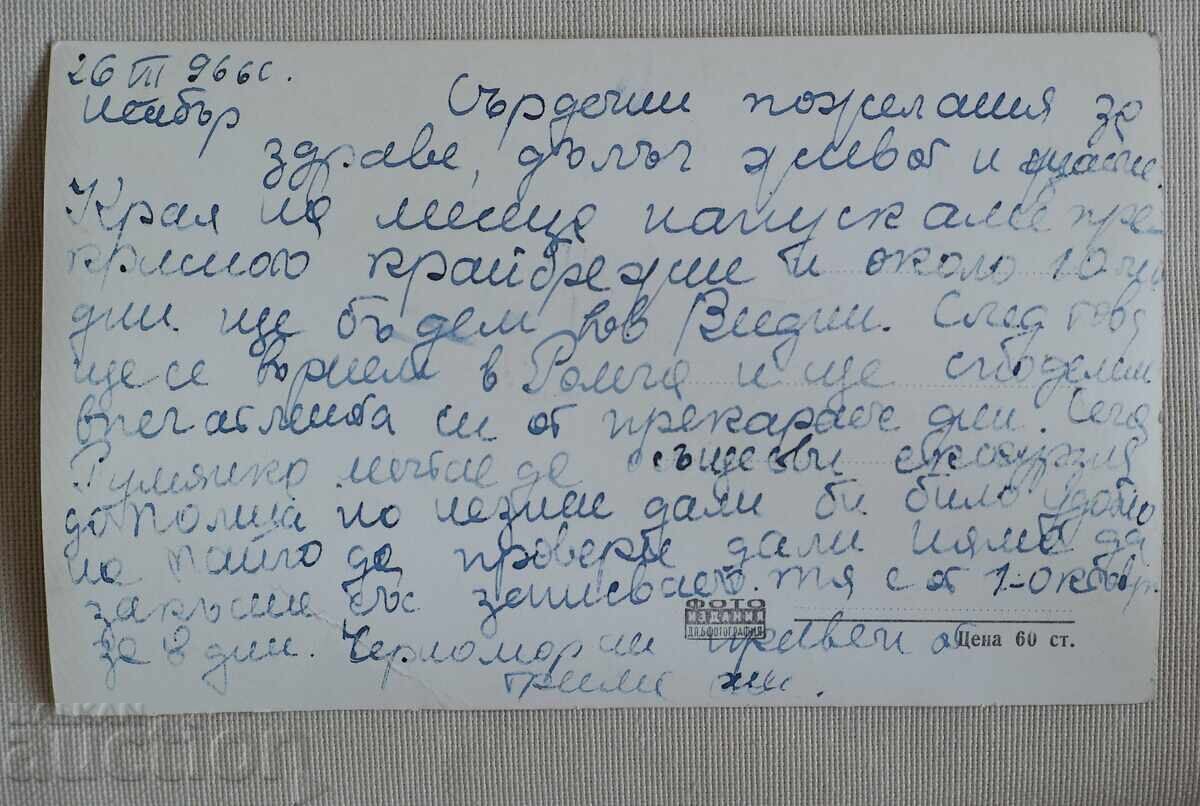 26 III 966 г.
Сърдечни пожелания за
здраве, дълъг живот и щастие.
Края на месеца напускаме пре
красното крайбрежие и около 10
дни ще бъдем във Видин. След това
ще се върнем в и ще споделим
впечатленията си от прекараните дни. Сега
Румянка мечтае да осъществи екскурзия
до полша но незнае дали би било удобно
на да провери дали няма да
закъсне със записването. тя е от 1-октомври
за 8 дни. Черноморски привети от
трима ни.
ФОТО
ИЗДАНИЯ
ДП„БЪЛГ.ФОТОГРАФИЯ"
Цена 60 ст.
BALKAN
auction